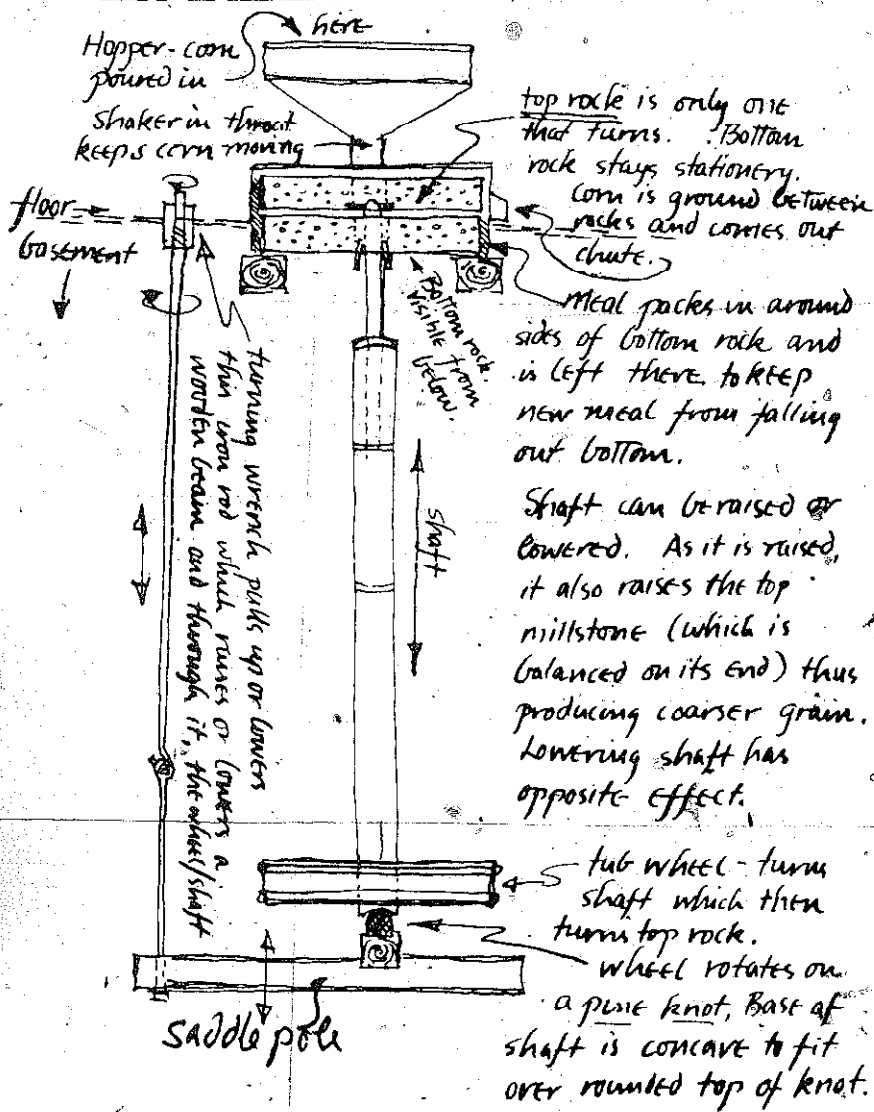 here
Hopper-corn
poured in
shaker in throat
keeps corn moving
floor
basement
top rock is only one
that turns. Bottom
rock stays stationery.
Corn is ground between
rocks and comes out
chute.
Bottom rock
visible from
below.
Meal packs in around
sides of bottom rock and
is left there to keep
new meal from falling
out bottom.
turning wrench pulls up or lowers
thin iron rod which raises or lowers a
wooden beam and through it, the wheel/shaft
shaft
Shaft can be raised or
lowered. As it is raised,
it also raises the top
millstone (which is
balanced on its end) thus
producing coarser grain.
Lowering shaft has
opposite effect.
tub wheel - turns
shaft which then
turns top rock.
wheel rotates on
a pine knot. Base of
shaft is concave to fit
over rounded top of knot.
saddle pole